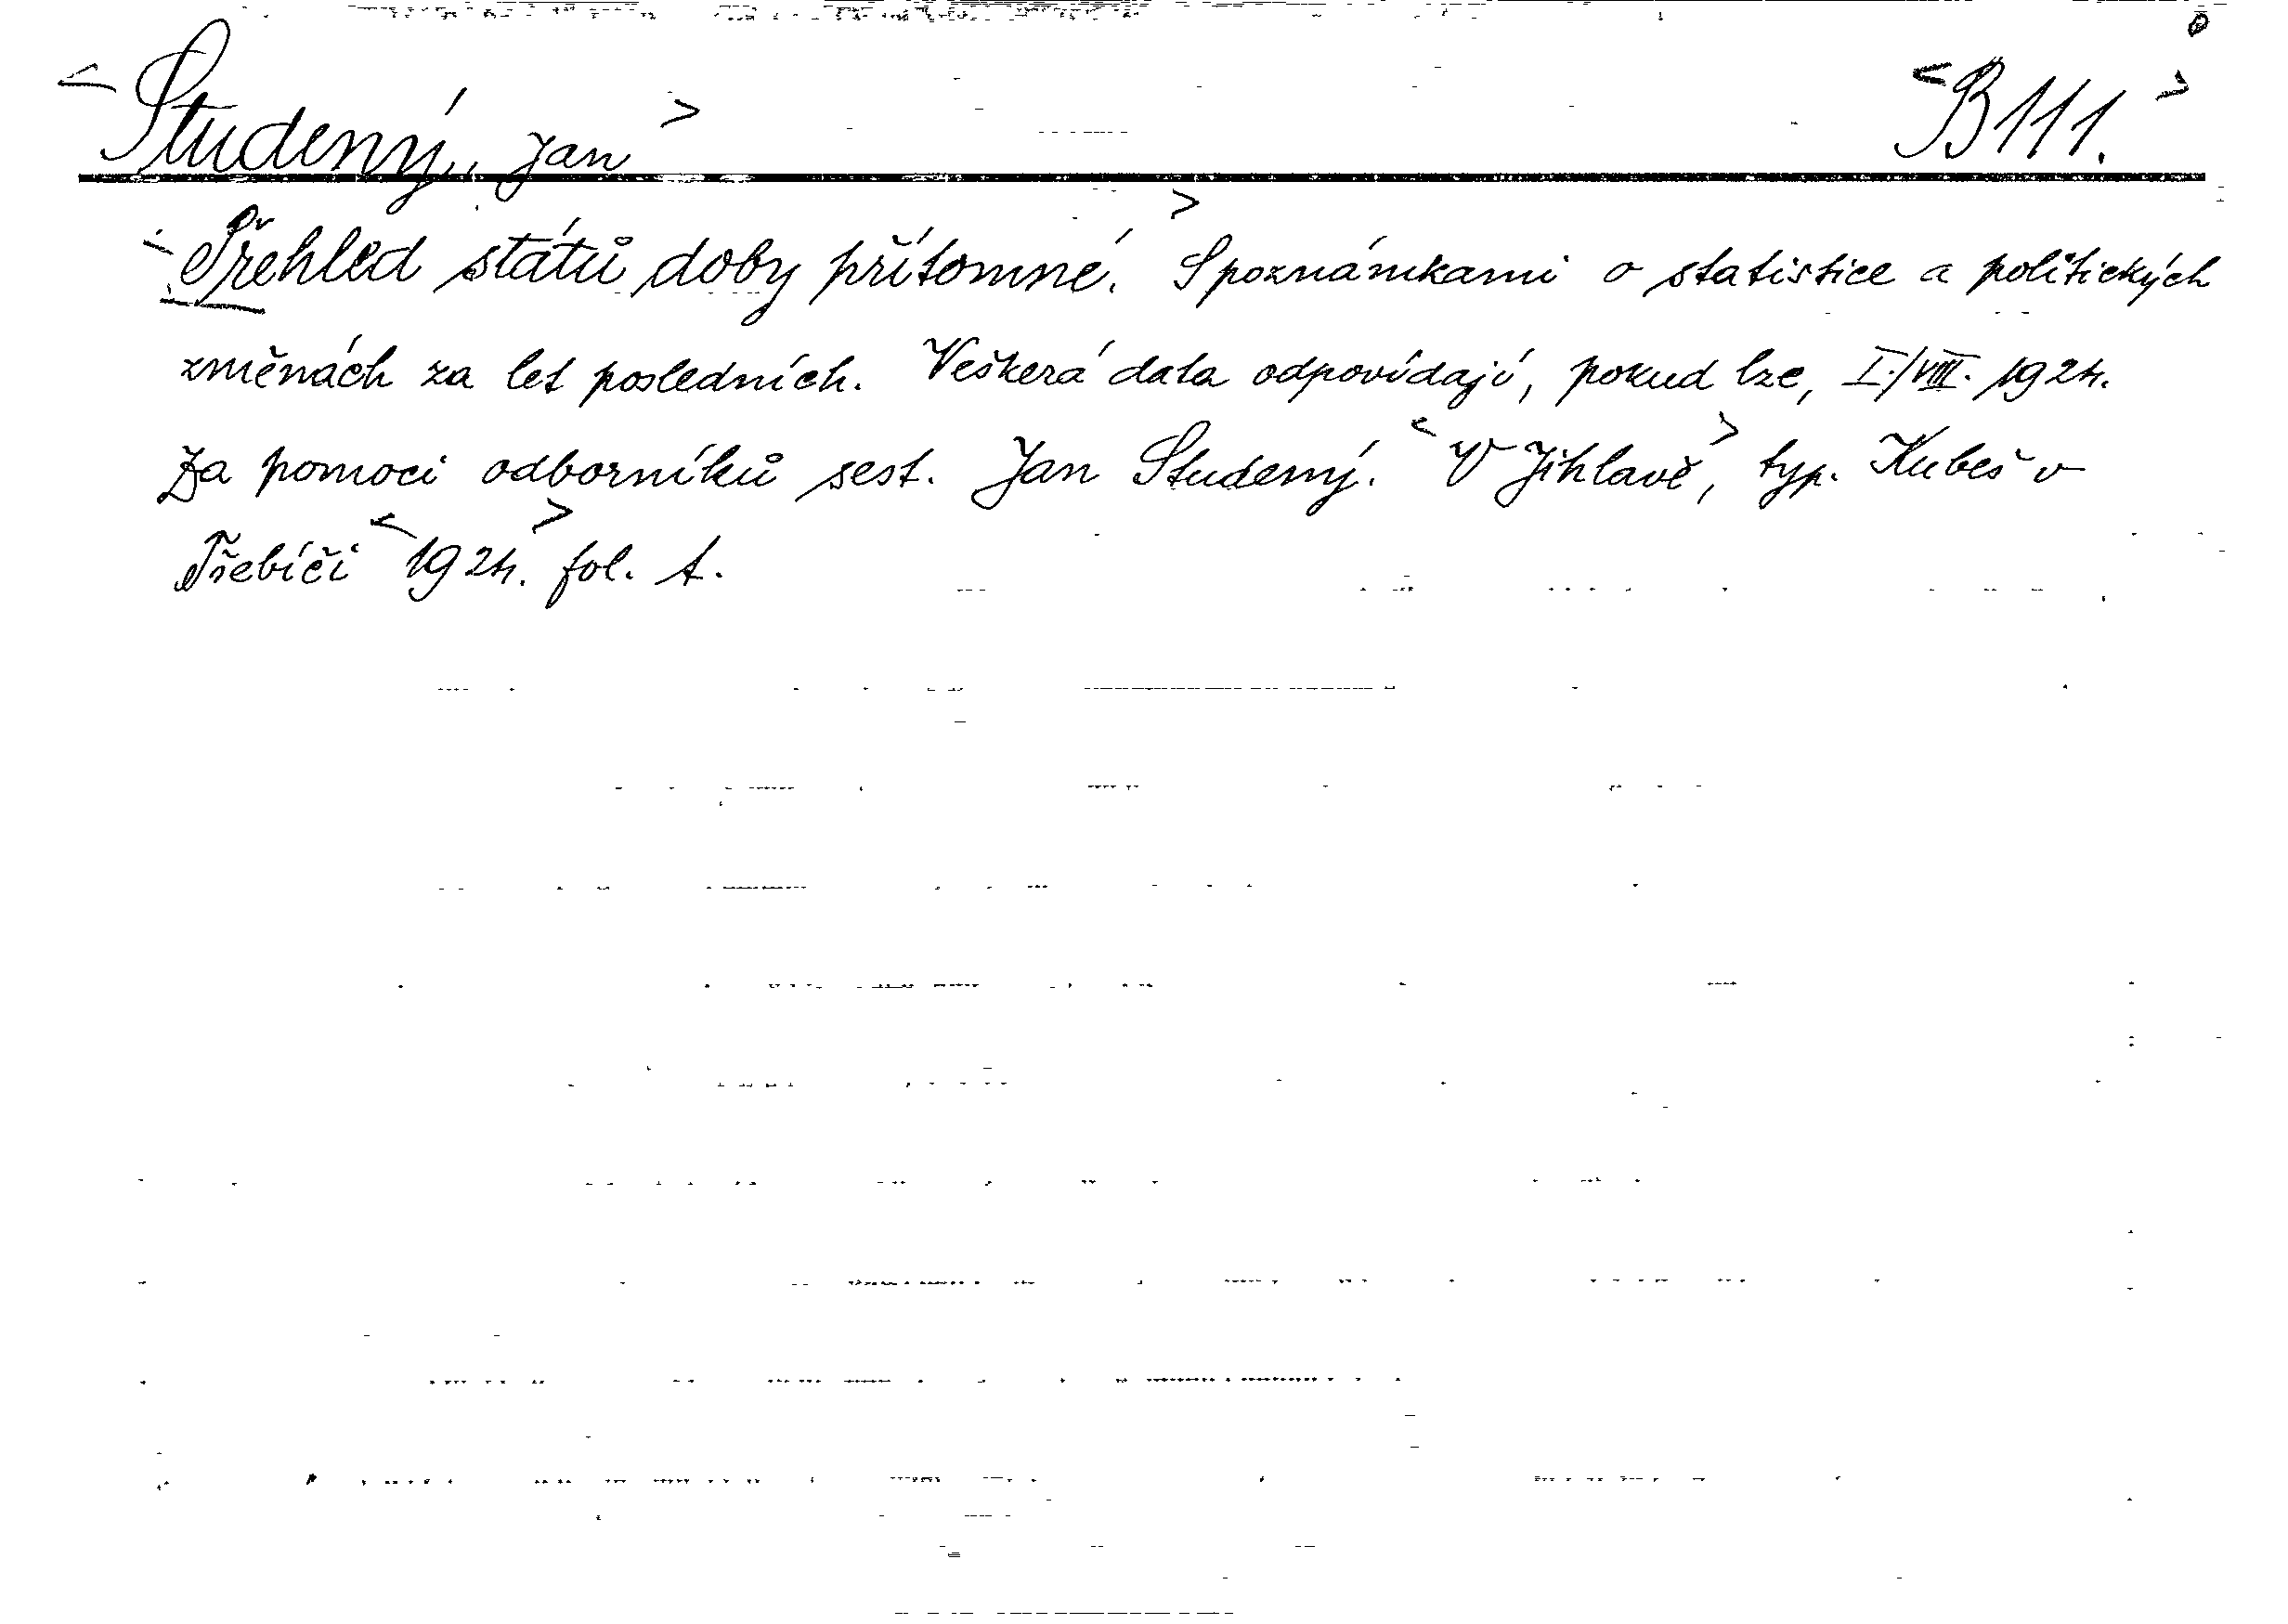 <Studený, Jan> <B 111.>
<Přehled států doby přítomné.> S poznámkami o statistice a politických
změnách za let posledních. Veškerá data odpovídají, pokud lze, I./VIII. 1924.
Za pomoci odborníků sest. Jan Studený. <V Jihlavě>, typ. Kubeš v
Třebíči <1924.> fol. 1.